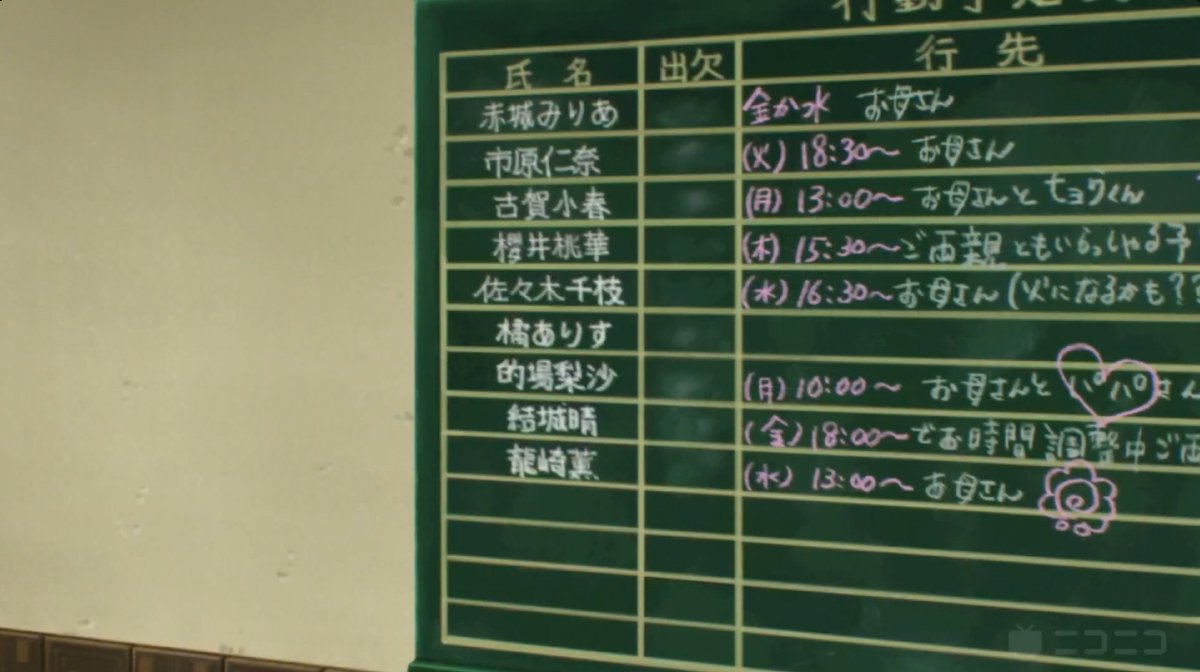 行動予定
氏名 出欠 行先
赤城みりあ 金か水 お母さん
市原仁奈 (火) 18:30〜 お母さん
古賀小春 (月) 13:00〜 お母さんとヒョウくん
櫻井桃華 (木) 15:30〜ご両親ともいらっしゃる予
佐々木千枝 (水) 16:30〜お母さん(火になるかも??
橘ありす
的場梨沙 (月) 10:00〜 お母さんとパパさん
結城晴 (金) 18:00〜でお時間調整中ご両
龍崎薫 (水) 13:00〜 お母さん
ニコニコ